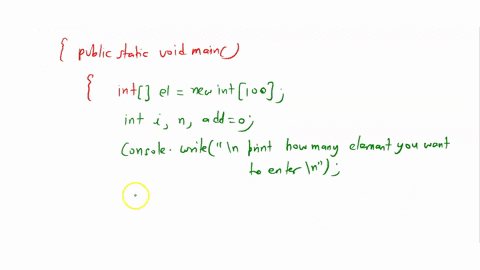 { public static void main()
{ int[] el = new int[100];
int i, n, add=0;
Console. write("\n print how many element you want
to enter \n");